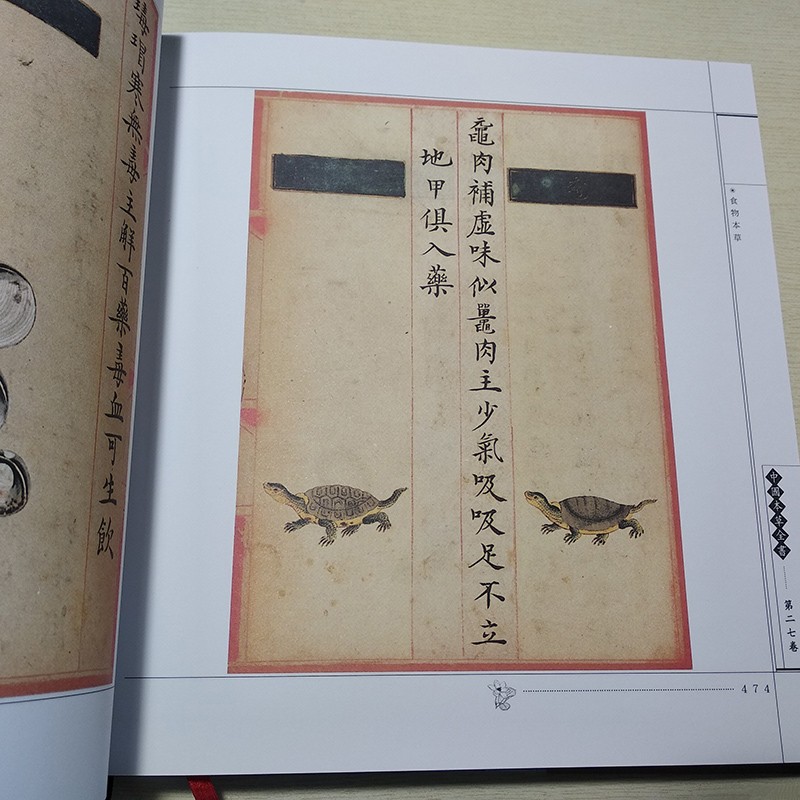 黿肉補虛味似鼉肉主少氣吸吸足不立
地甲俱入藥
瑇瑁寒無毒主解百藥毒血可生飲
食物本草
中國本草全書
第二七卷
474